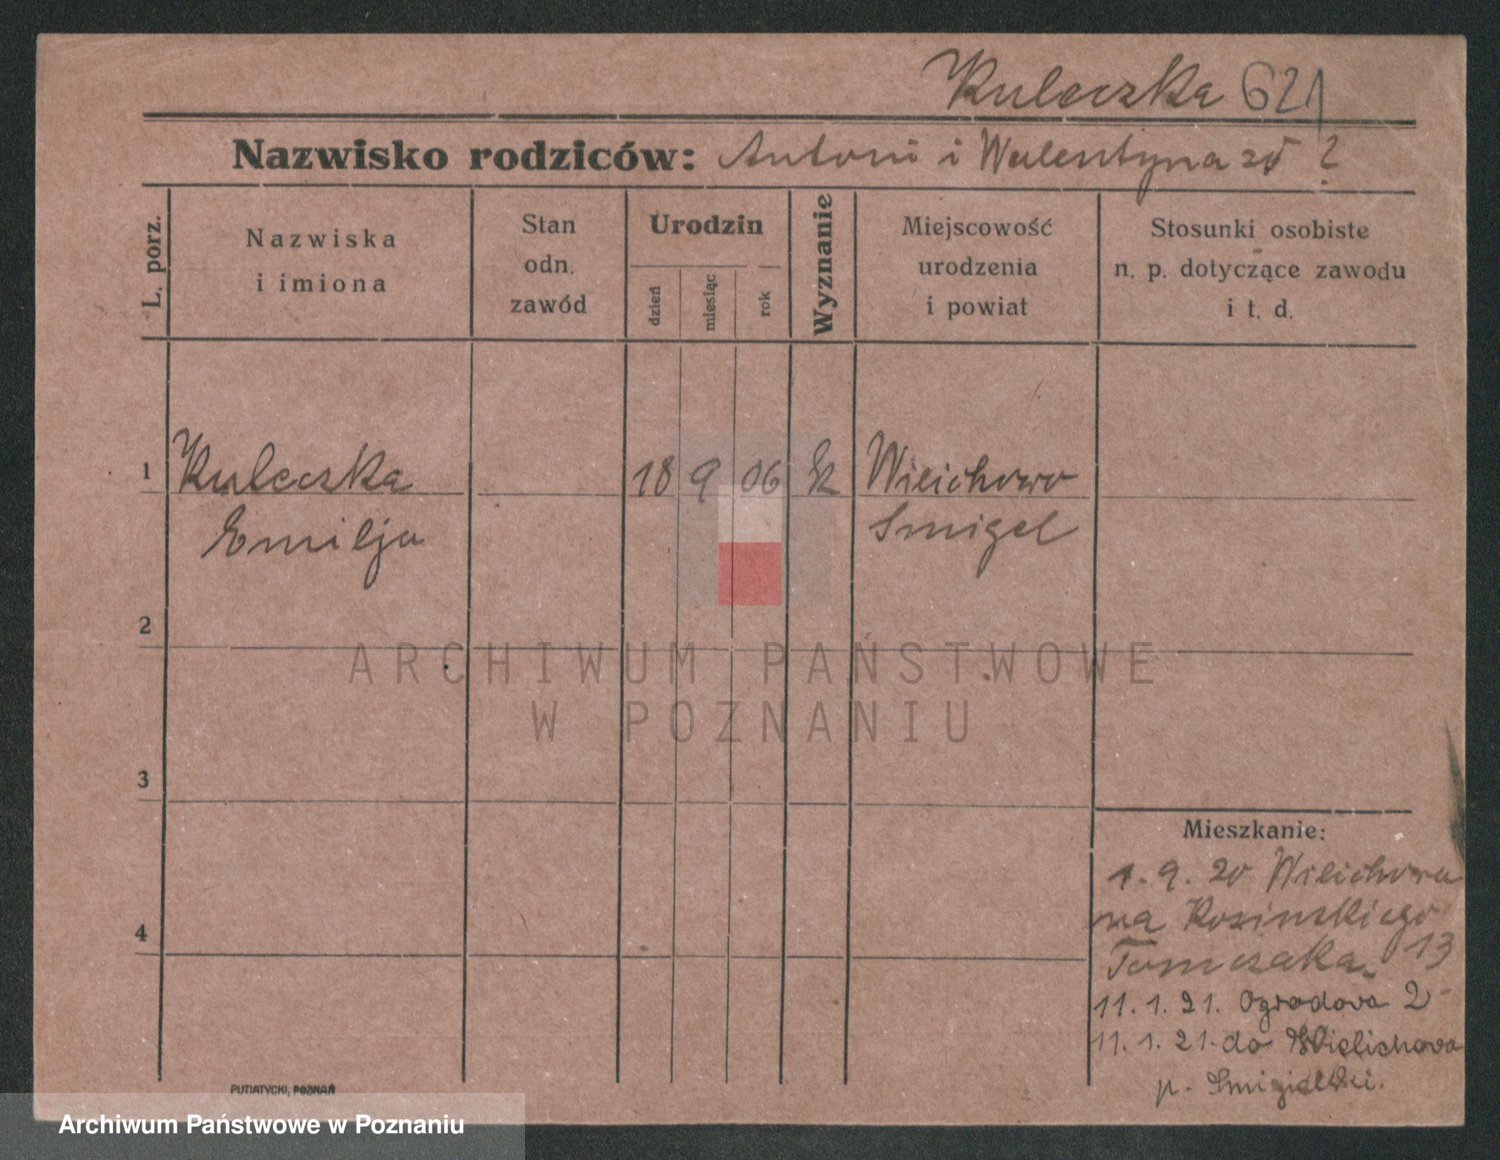 Kuleczka 621
Nazwisko rodziców: Antoni i Walentyna zd ?
L. porz.
Nazwiska
i imiona
Stan
odn.
zawód
Urodzin
dzień
miesiąc
rok
Wyznanie
Miejscowość
urodzenia
i powiat
Stosunki osobiste
n. p. dotyczące zawodu
i t. d.
1 Kuleczka 18 9 06 k Wilichowo
Emilja Smigel
2
ARCHIWUM PAŃSTWOWE
W POZNANIU
3
Mieszkanie:
1. 9. 20 Wilichowa
na Kosinskiego
4
Tomczaka 13
11. 1. 21. Ogrodova 2
11. 1. 21. do Wielichova
p. Smigielski.
PUTIATYCKI, POZNAŃ
Archiwum Państwowe w Poznaniu